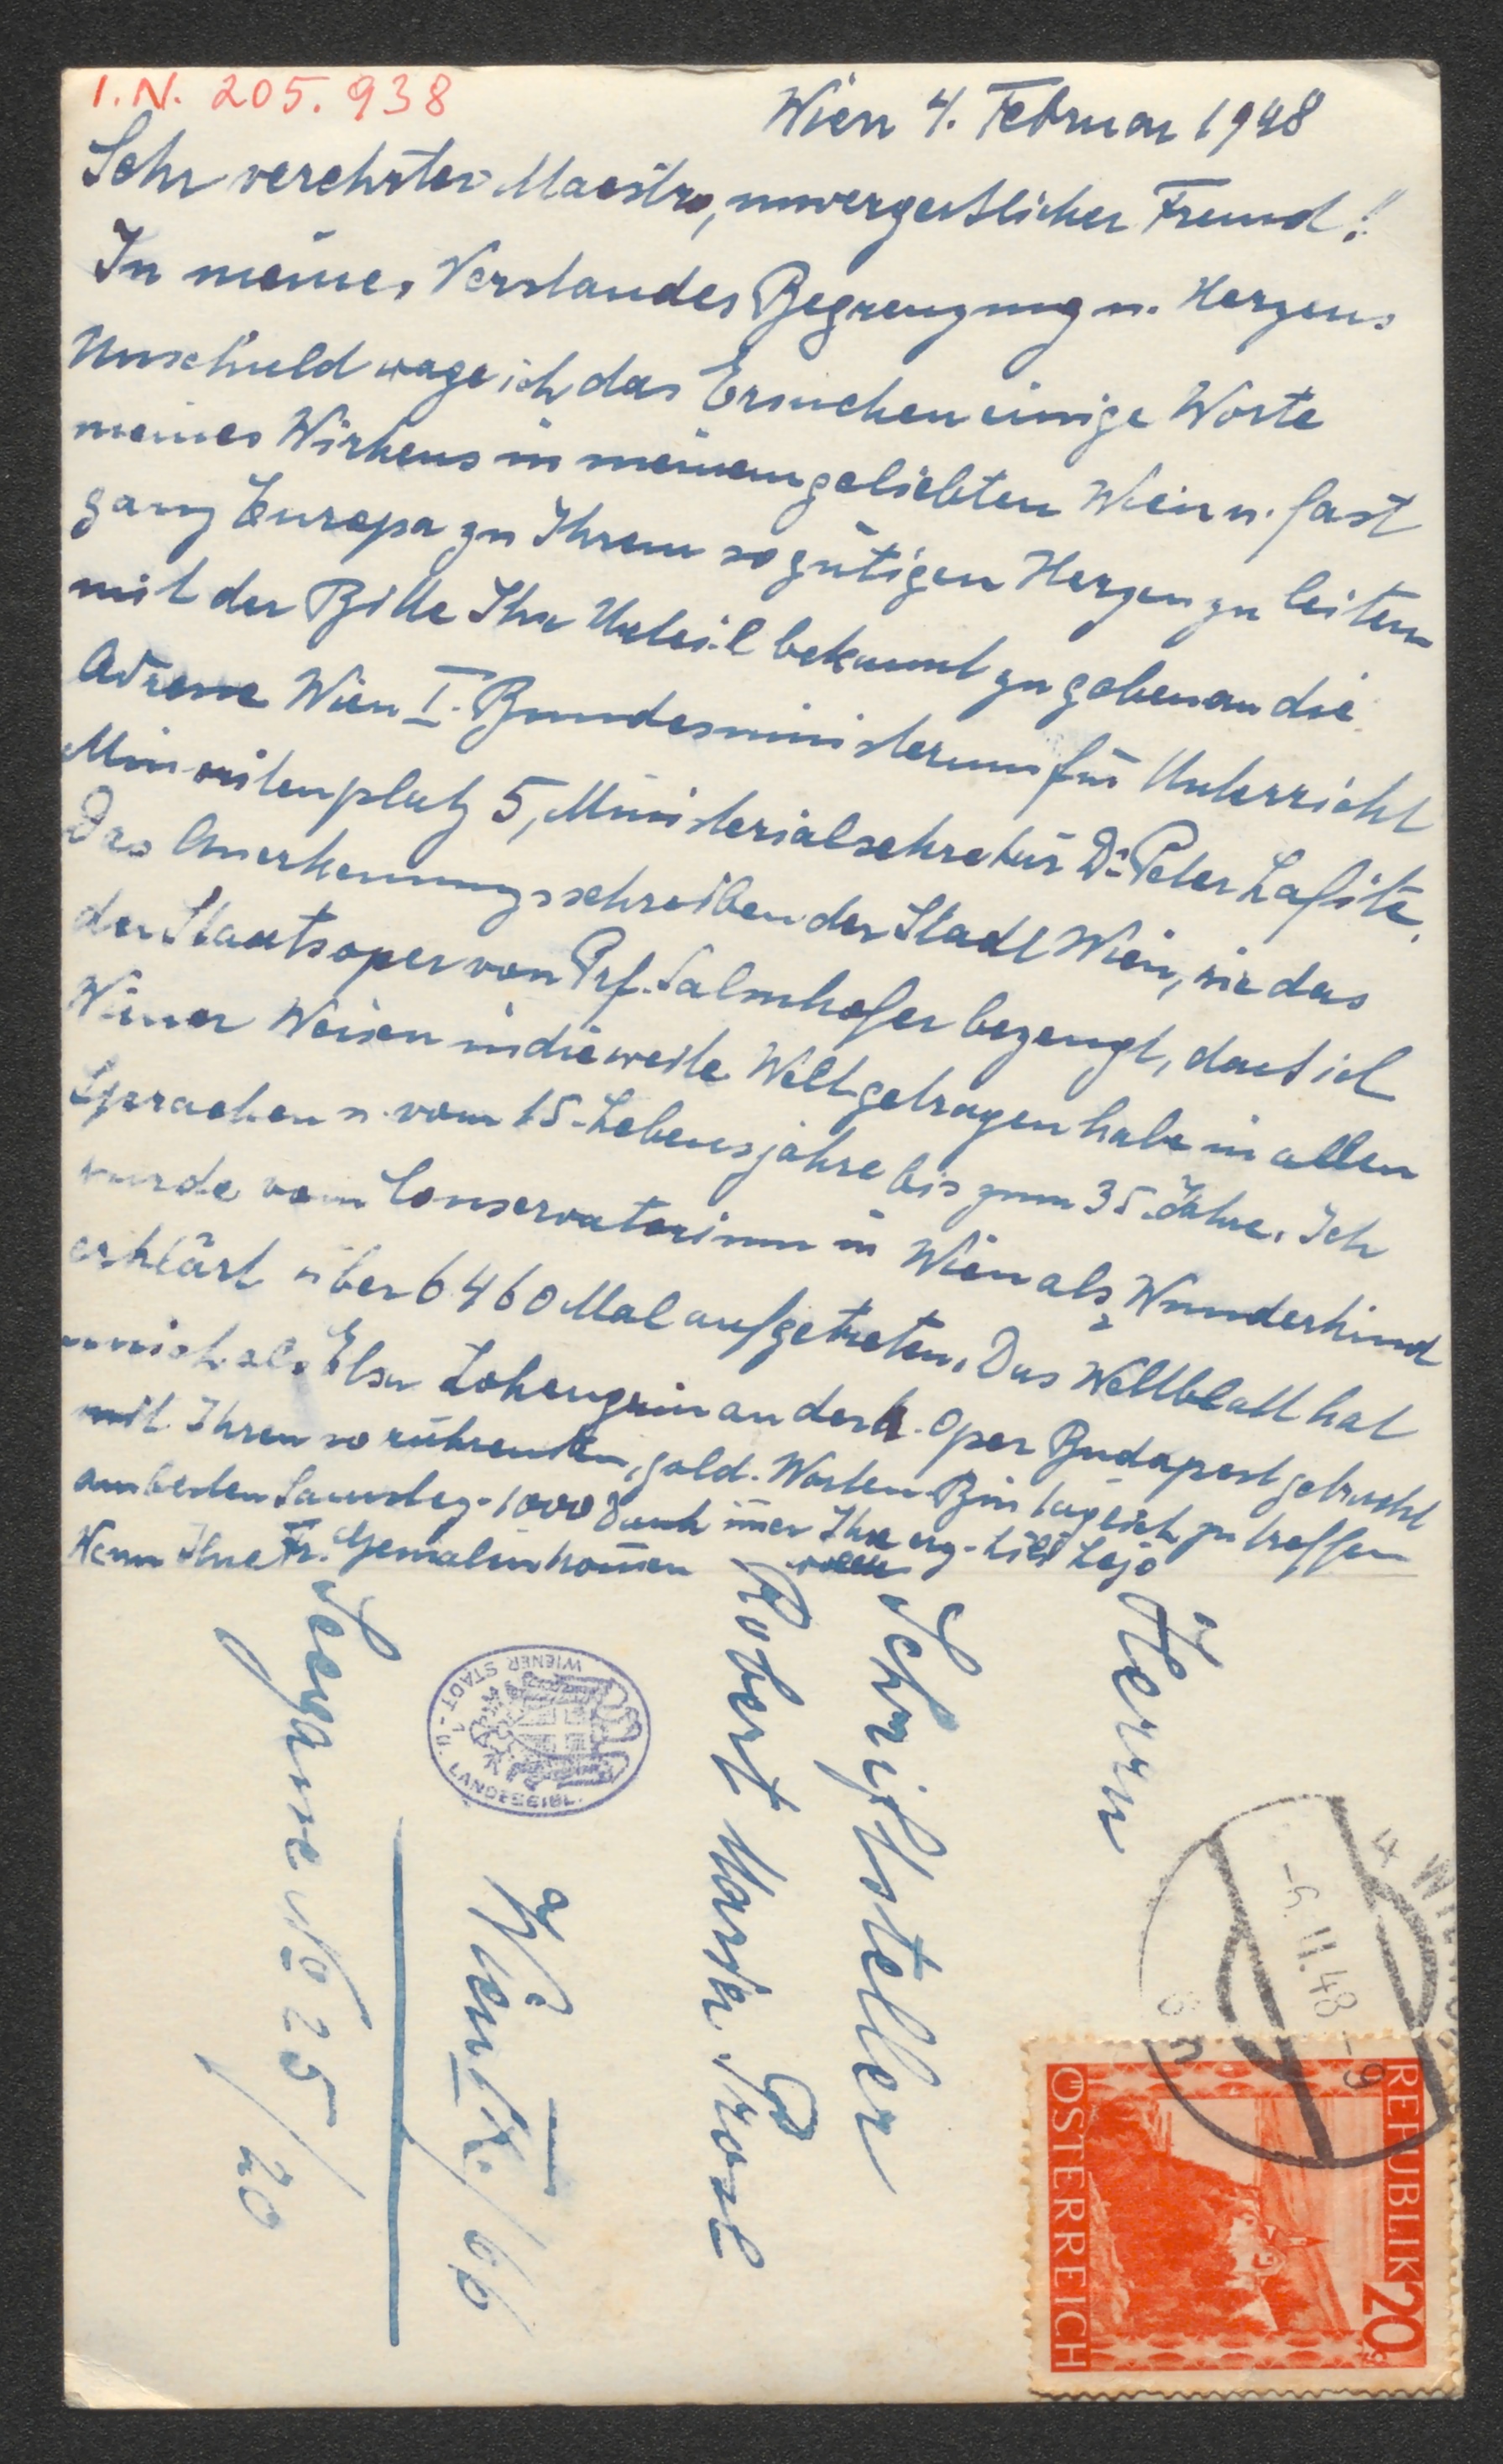 I.N. 205.938
Wien 4. Februar 1948
Sehr verehrter Maestro, unvergeßlicher Freund!
In meines Verstandes Begrenzung u. Herzens
Unschuld wage ich das Ersuchen einige Worte
meines Wirkens in meinem geliebten Wien u. fast
ganz Europa zu Ihrem so gütigen Herzen zu leiten
mit der Bitte Ihr Urteil bekannt zu geben an die
Adresse Wien I. Bundesministerium für Unterricht
Minoritenplatz 5, Ministerialsekretär Dr. Peter Lafite.
Das Anerkennungsschreiben der Stadt Wien, wie das
der Staatsoper von Prf. Salmhofer bezeugt, daß ich
Wiener Weisen in die weite Welt getragen habe in allen
Sprachen u. vom 15. Lebensjahre bis zum 35. Jahre. Ich
wurde vom Conservatorium in Wien als Wunderkind
erklärt über 6460 Mal aufgetreten. Das Weltblatt hat
mich als Elsa Lohengrin an der k. Oper Budapest gebracht
mit Ihren so rührenden, gold. Worten. Bin täglich zu treffen
am besten Samstag. 1000 Dank Ihre erg. Lejo
Wenn Ihre Fr. Gemalin kommen
Herrn
Schriftsteller
Robert Maria Prosl
Wien IX./66
Seegasse No 25/20
WIENER STADT- U. LANDESBIBL.
WIEN
-6.II.48-9
REPUBLIK 20
ÖSTERREICH